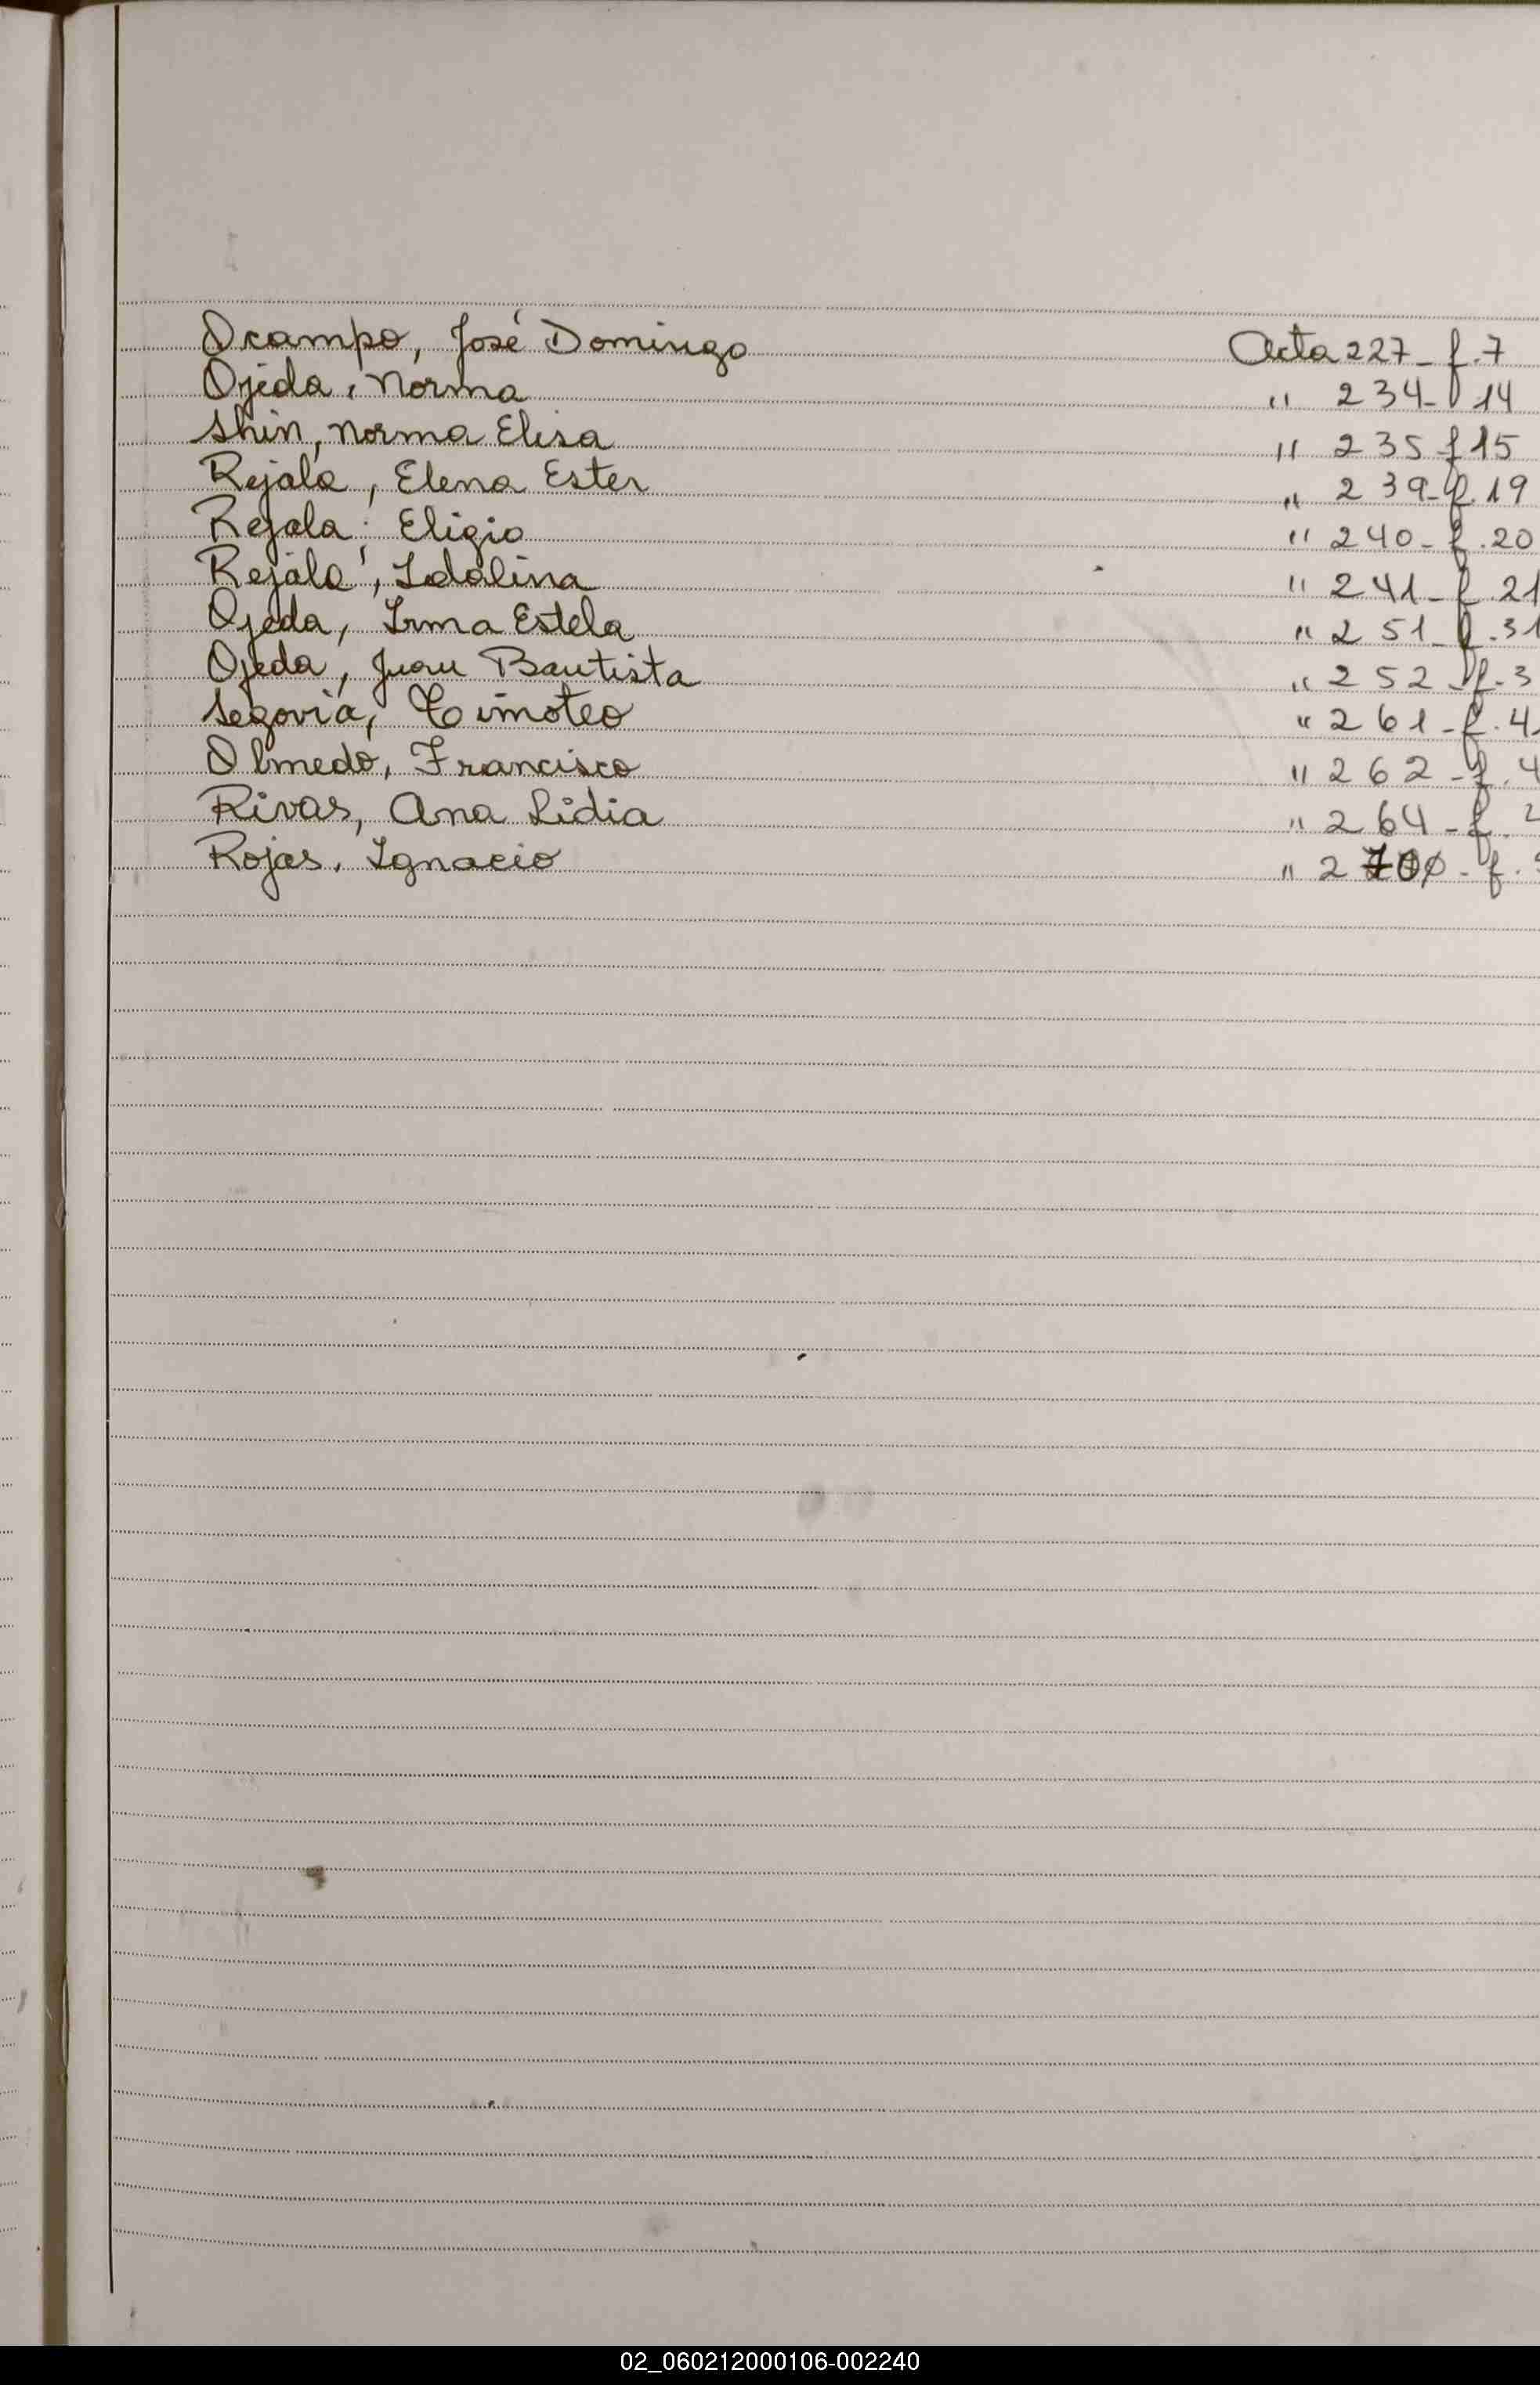 Ocampo, José Domingo Acta 227_ f.7
Ojeda, Norma " 234_ f 14
Shin, Norma Elisa " 235 f 15
Rejala, Elena Ester " 239_ f.19
Rejala, Eligio " 240_ f.20
Rejala, Idalina " 241_ f.21
Ojeda, Irma Estela " 251_ f.31
Ojeda, Juan Bautista " 252_ f.3
Segovia, Timoteo " 261_ f.4
Olmedo, Francisco " 262_ f.4
Rivas, Ana Lidia " 264_ f.
Rojas, Ignacio " f.
02_060212000106-002240